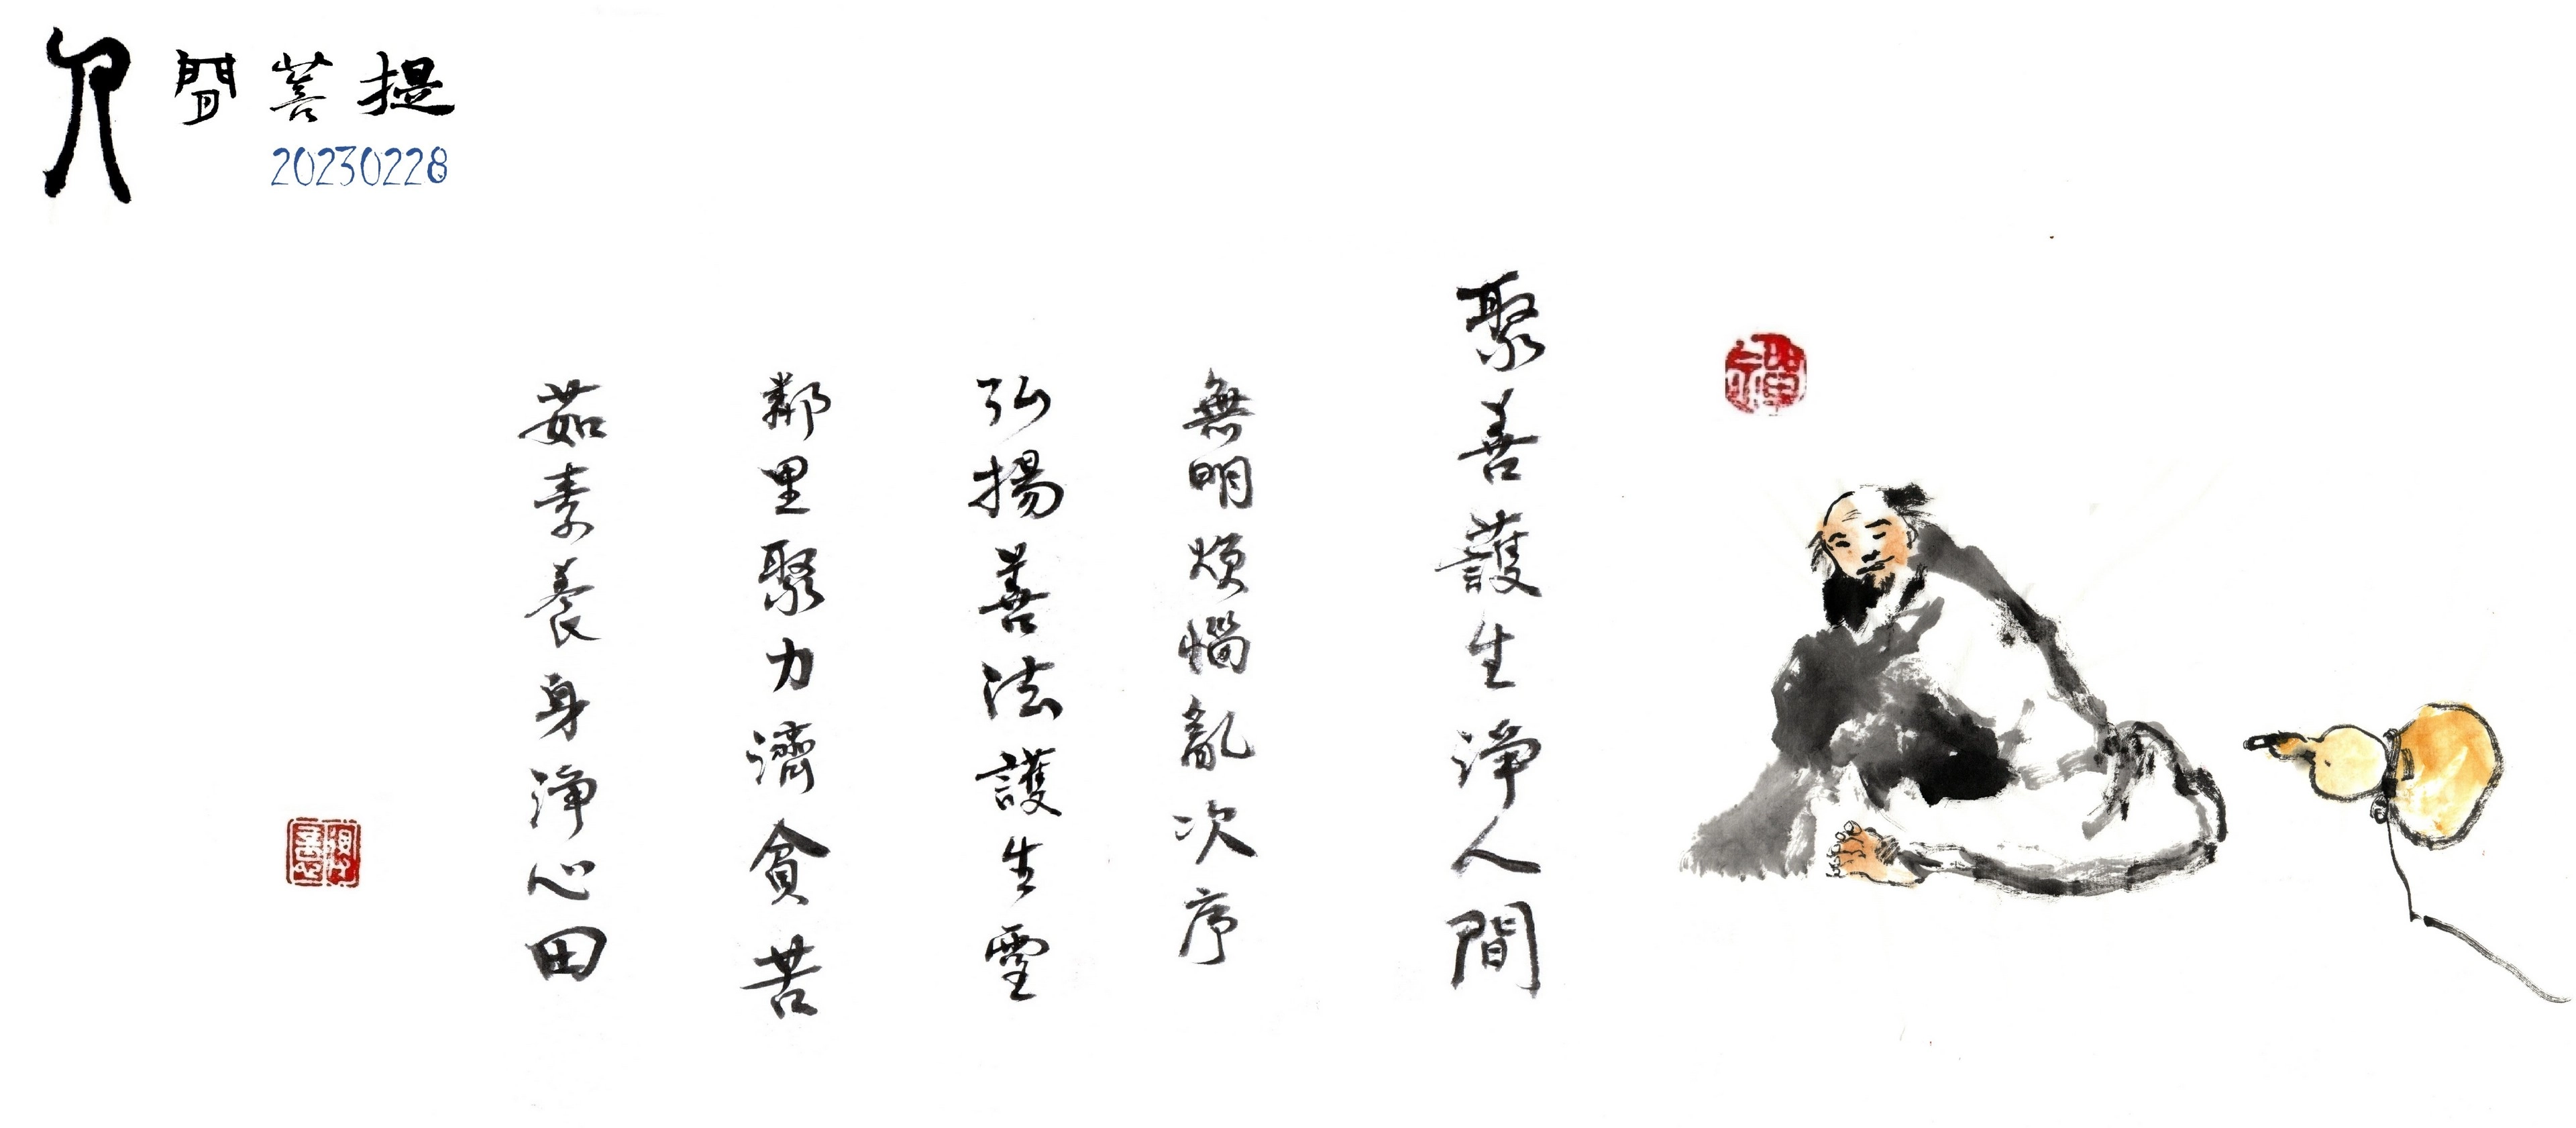 人間菩提
20230228
聚善護生淨人間
無明煩惱亂次序
弘揚善法護生靈
鄰里聚力濟貧苦
茹素養身淨心田